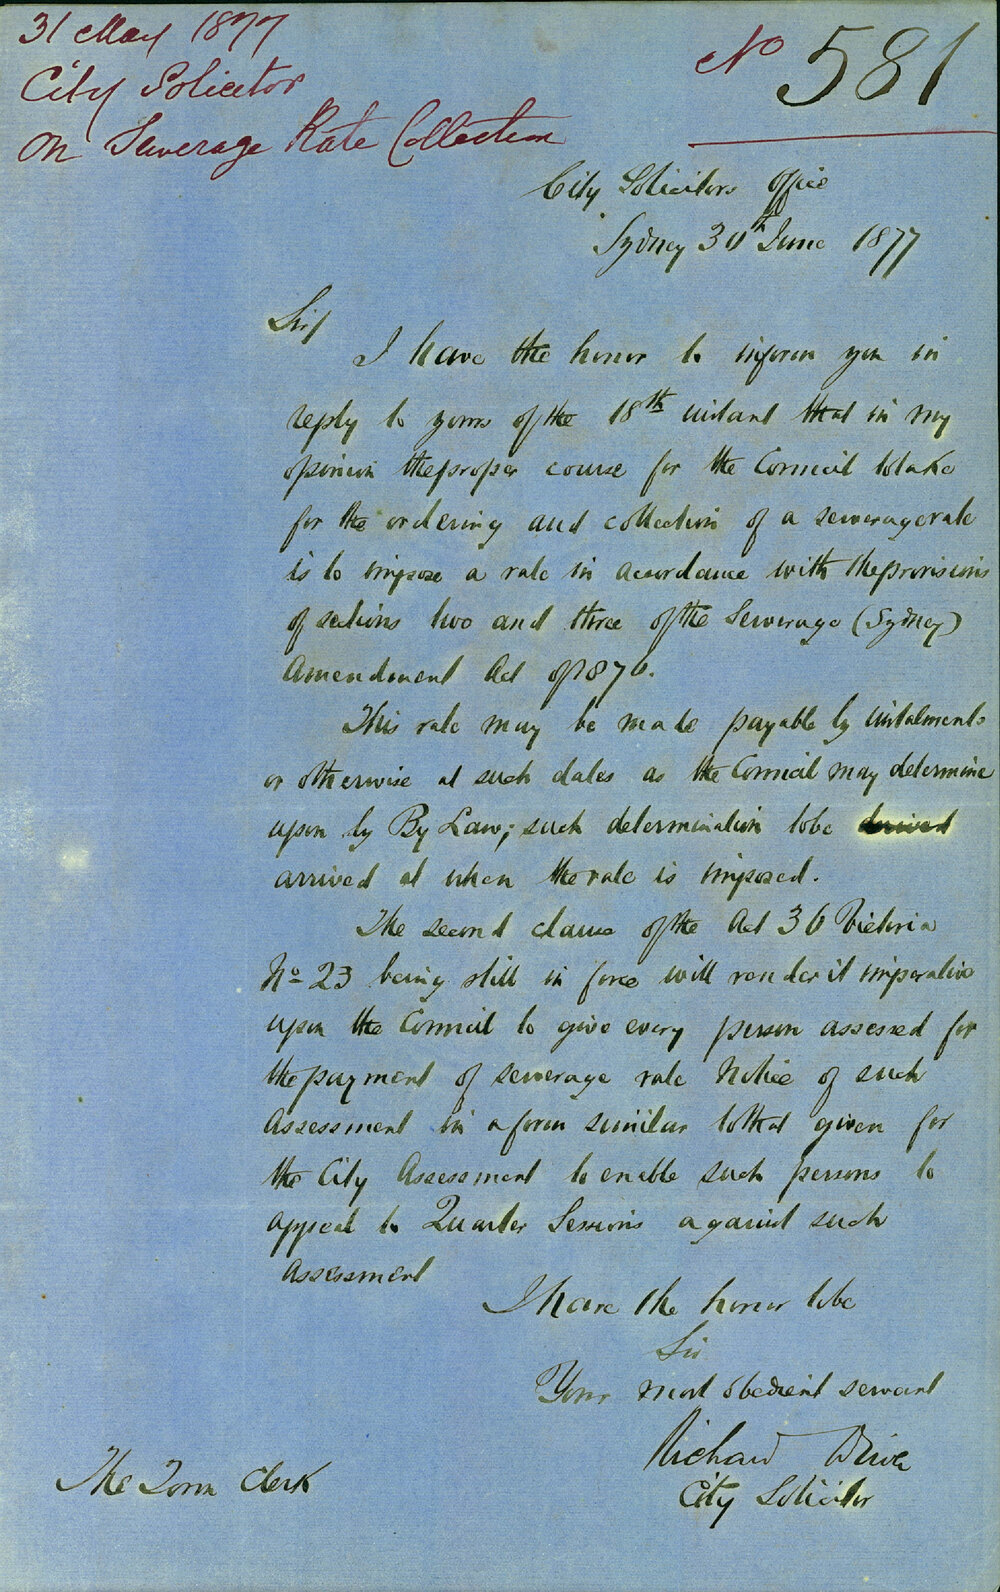 31 May 1877
City Solicitor
on Sewerage Rate Collection
No 581
City Solicitors Office
Sydney 30th June 1877
Sir/
I have the honor to inform you in
reply to yours of the 18th instant that in my
opinion the proper course for the Council to take
for the ordering and collection of a sewerage rate
is to impose a rate in accordance with the provisions
of sections two and three of the Sewerage (Sydney)
Amendment Act of 1876.
This rate may be made payable by instalments
or otherwise at such dates as the Council may determine
upon by By Law; such determination to be
arrived at when the rate is imposed.
The second clause of the Act 36 Victoria
No 23 being still in force will render it imperative
upon the Council to give every person assessed for
the payment of sewerage rate Notice of such
Assessment in a form similar to that given for
the City Assessment to enable such persons to
appeal to Quarter Sessions against such
Assessment
I have the honor to be
Sir
Your most obedient servant
Richard Driver
City Solicitor
The Town Clerk